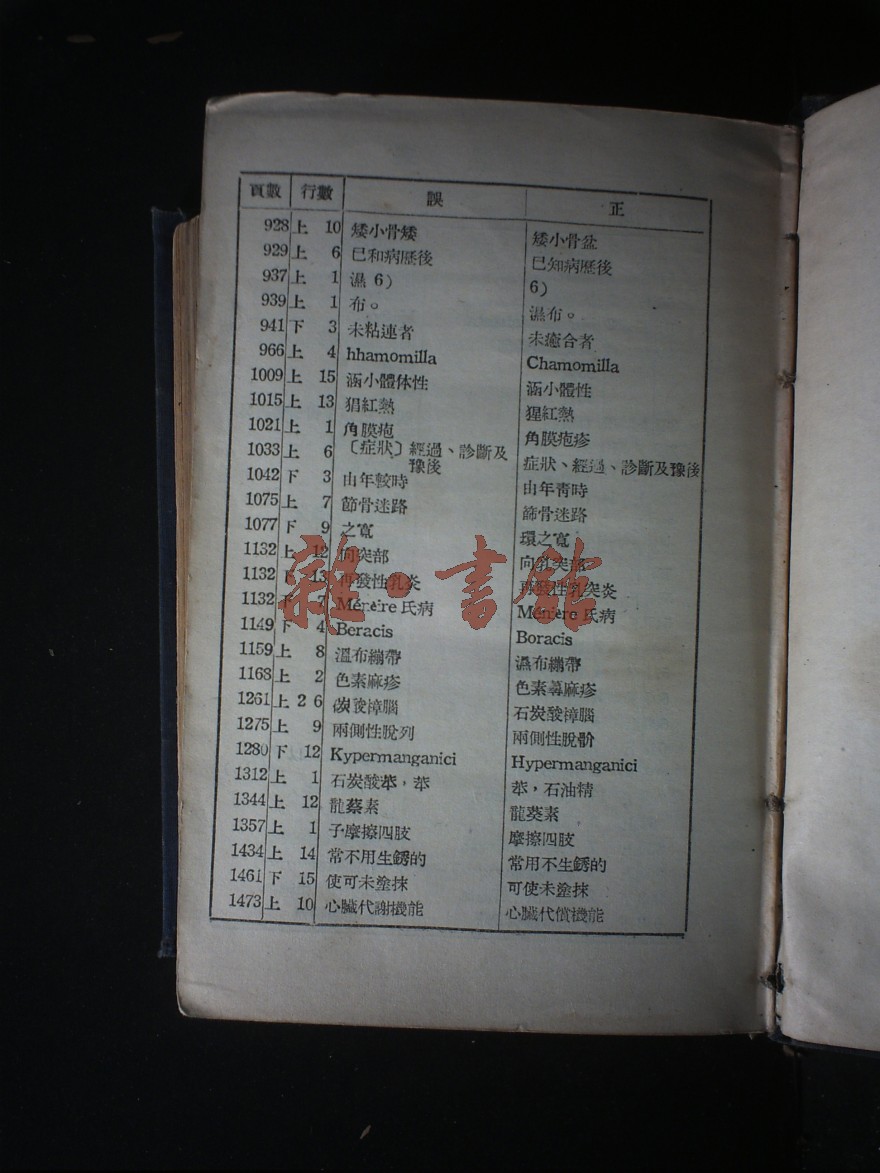 頁數 行數 誤 正
928 上 10 矮小骨矮 矮小骨盆
929 上 6 巳和病歷後 巳知病歷後
937 上 1 濕 6) 6)
939 上 1 布。 濕布。
941 下 3 未粘連者 未癒合者
966 上 4 hhamomilla Chamomilla
1009 上 15 涵小體体性 涵小體性
1015 上 13 猖紅熱 猩紅熱
1021 上 1 角膜疱 角膜疱疹
1033 上 6 〔症狀〕經過、診斷及豫後 症狀、經過、診斷及豫後
1042 下 3 由年較時 由年靑時
1075 上 7 節骨迷路 篩骨迷路
1077 下 9 之寬 環之寬
1132 上 12 向突部 向乳突部
1132 下 13 再發性乳炎 再發性乳突炎
1132 下 7 Méneire 氏病 Ménière 氏病
1149 下 4 Beracis Boracis
1159 上 8 溫布繃帶 濕布繃帶
1168 上 2 色素麻疹 色素蕁麻疹
1261 上 2 6 炭酸樟腦 石炭酸樟腦
1275 上 9 兩側性脫列 兩側性脫骱
1280 下 12 Kypermanganici Hypermanganici
1312 上 1 石炭酸苯，苯 苯，石油精
1344 上 12 龍蔡素 龍葵素
1357 上 1 子摩擦四肢 摩擦四肢
1434 上 14 常不用生銹的 常用不生銹的
1461 下 15 使可未塗抹 可使未塗抹
1473 上 10 心臟代謝機能 心臟代償機能
雜·書館